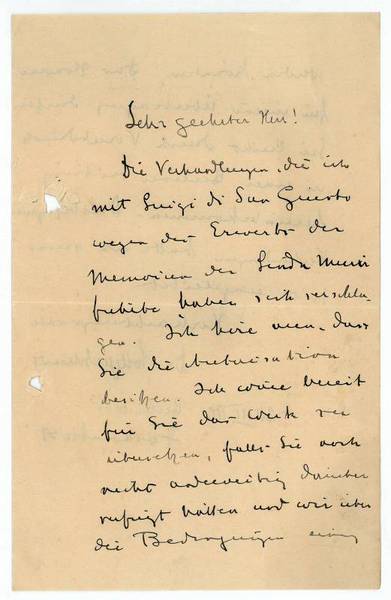 Sehr geehrter Herr!
Die Verhandlungen, die ich
mit Luigi di San Giusto
wegen des Erwerbs der
Memoiren der Linda Murri
habe haben sich zerschla-
gen. Ich höre nun, dass
Sie die Autorisation
besitzen. Ich wäre bereit
für Sie das Werk zu
übersetzen, falls Sie noch
nicht anderweitig darüber
verfügt hätten und wir über
die Bedingungen einig